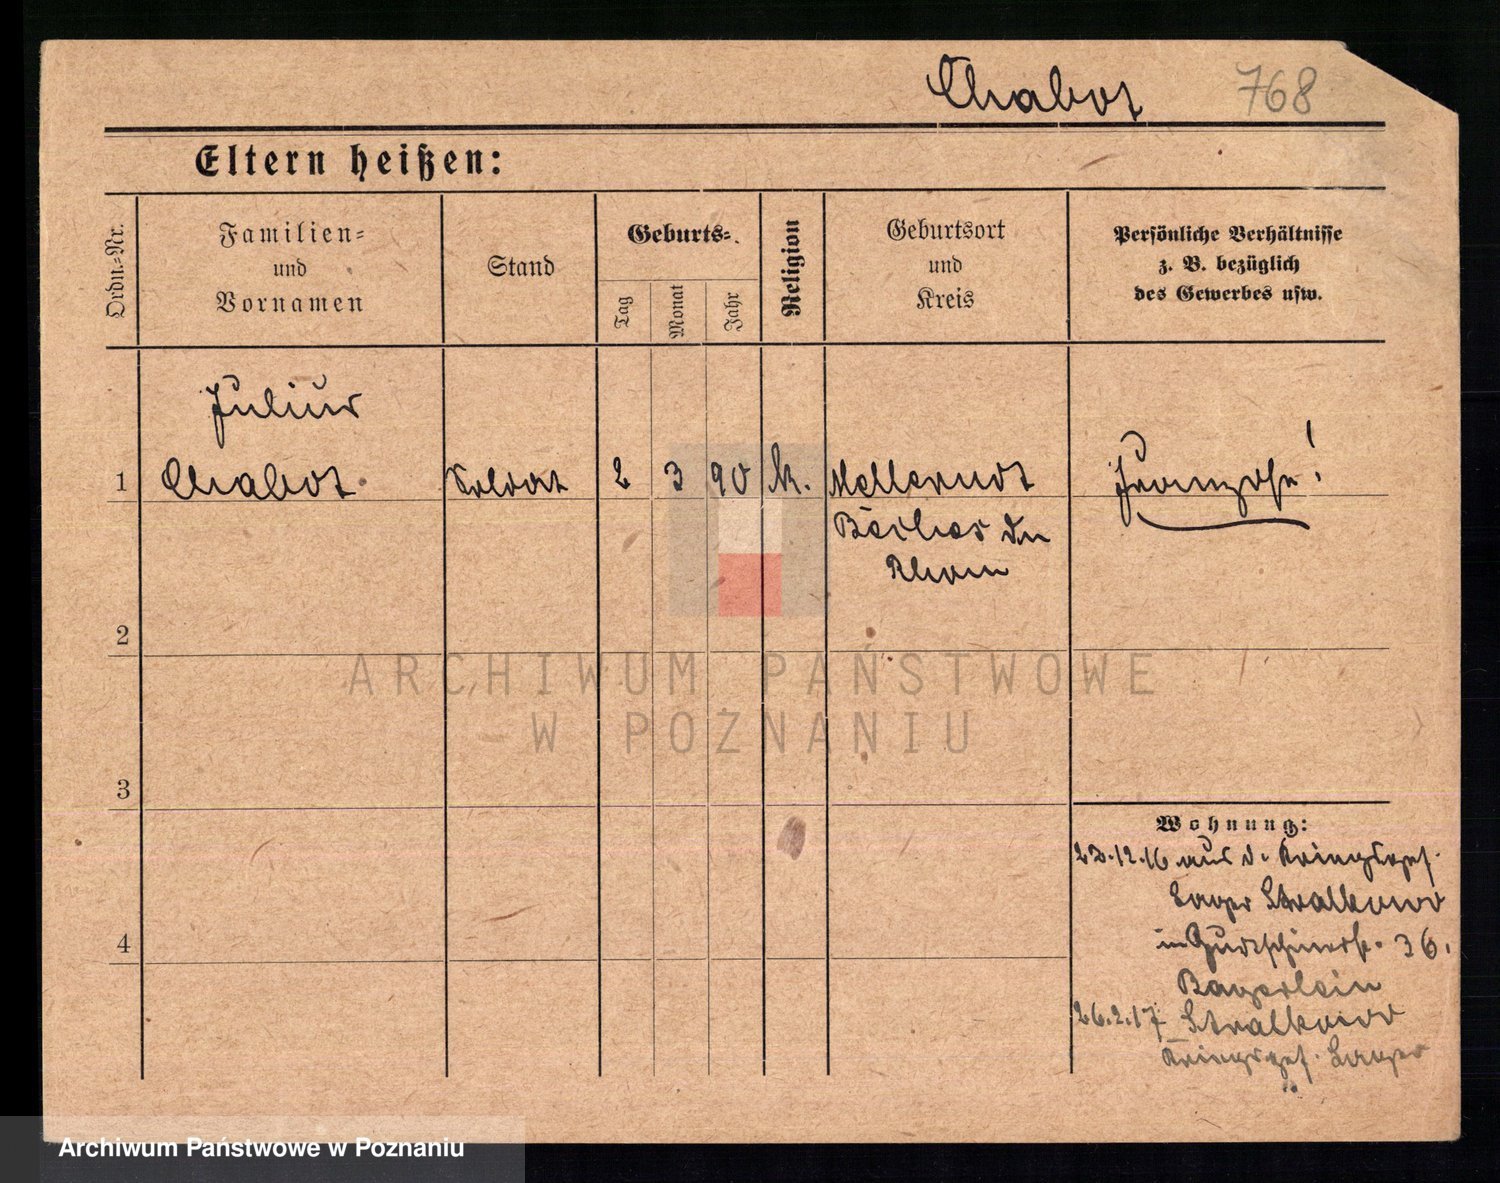 Chabot 768
Eltern heißen:
Ordn.-Nr.
Familien-
und
Vornamen
Stand
Geburts-
Tag
Monat
Jahr
Religion
Geburtsort
und
Kreis
Persönliche Verhältnisse
z. B. bezüglich
des Gewerbes usw.
Julius
1 Chabot Soldat 2 3 90 k. Franzose!
Rhom
2
ARCHIWUM PAŃSTWOWE
W POZNANIU
3
Wohnung:
22.12.16 aus d. Kriegsgef.
Lager Stralkowo
in 36.
Bayerlein
26.2.17 Stralkowo
Kriegsgef. Lager
4
Archiwum Państwowe w Poznaniu